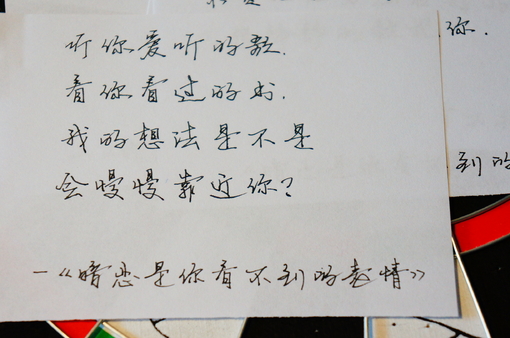 听你爱听的歌.
看你看过的书.
我的想法是不是
会慢慢靠近你?
—《暗恋是你看不到的表情》
你.
到的